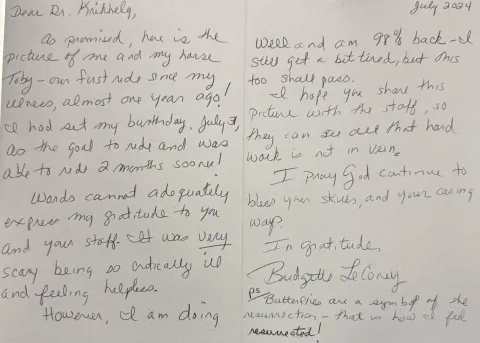 Dear Dr. Krikhely,
As promised, here is the
picture of me and my horse
Toby - our first ride since my
illness, almost one year ago!
I had set my birthday, July 3,
as the goal to ride and was
able to ride 2 months sooner!
Words cannot adequately
express my gratitude to you
and your staff. It was very
scary being so critically ill
and feeling helpless.
However, I am doing
July 2024
well and am 98% back - I
still get a bit tired, but this
too shall pass.
I hope you share this
picture with the staff, so
they can see all that hard
work is not in vein.
I pray God continue to
bless your skills, and your caring
way.
In gratitude,
Bridgette
PS Butterflies are a symbol of the
resurrection - that is how I feel
resurrected!